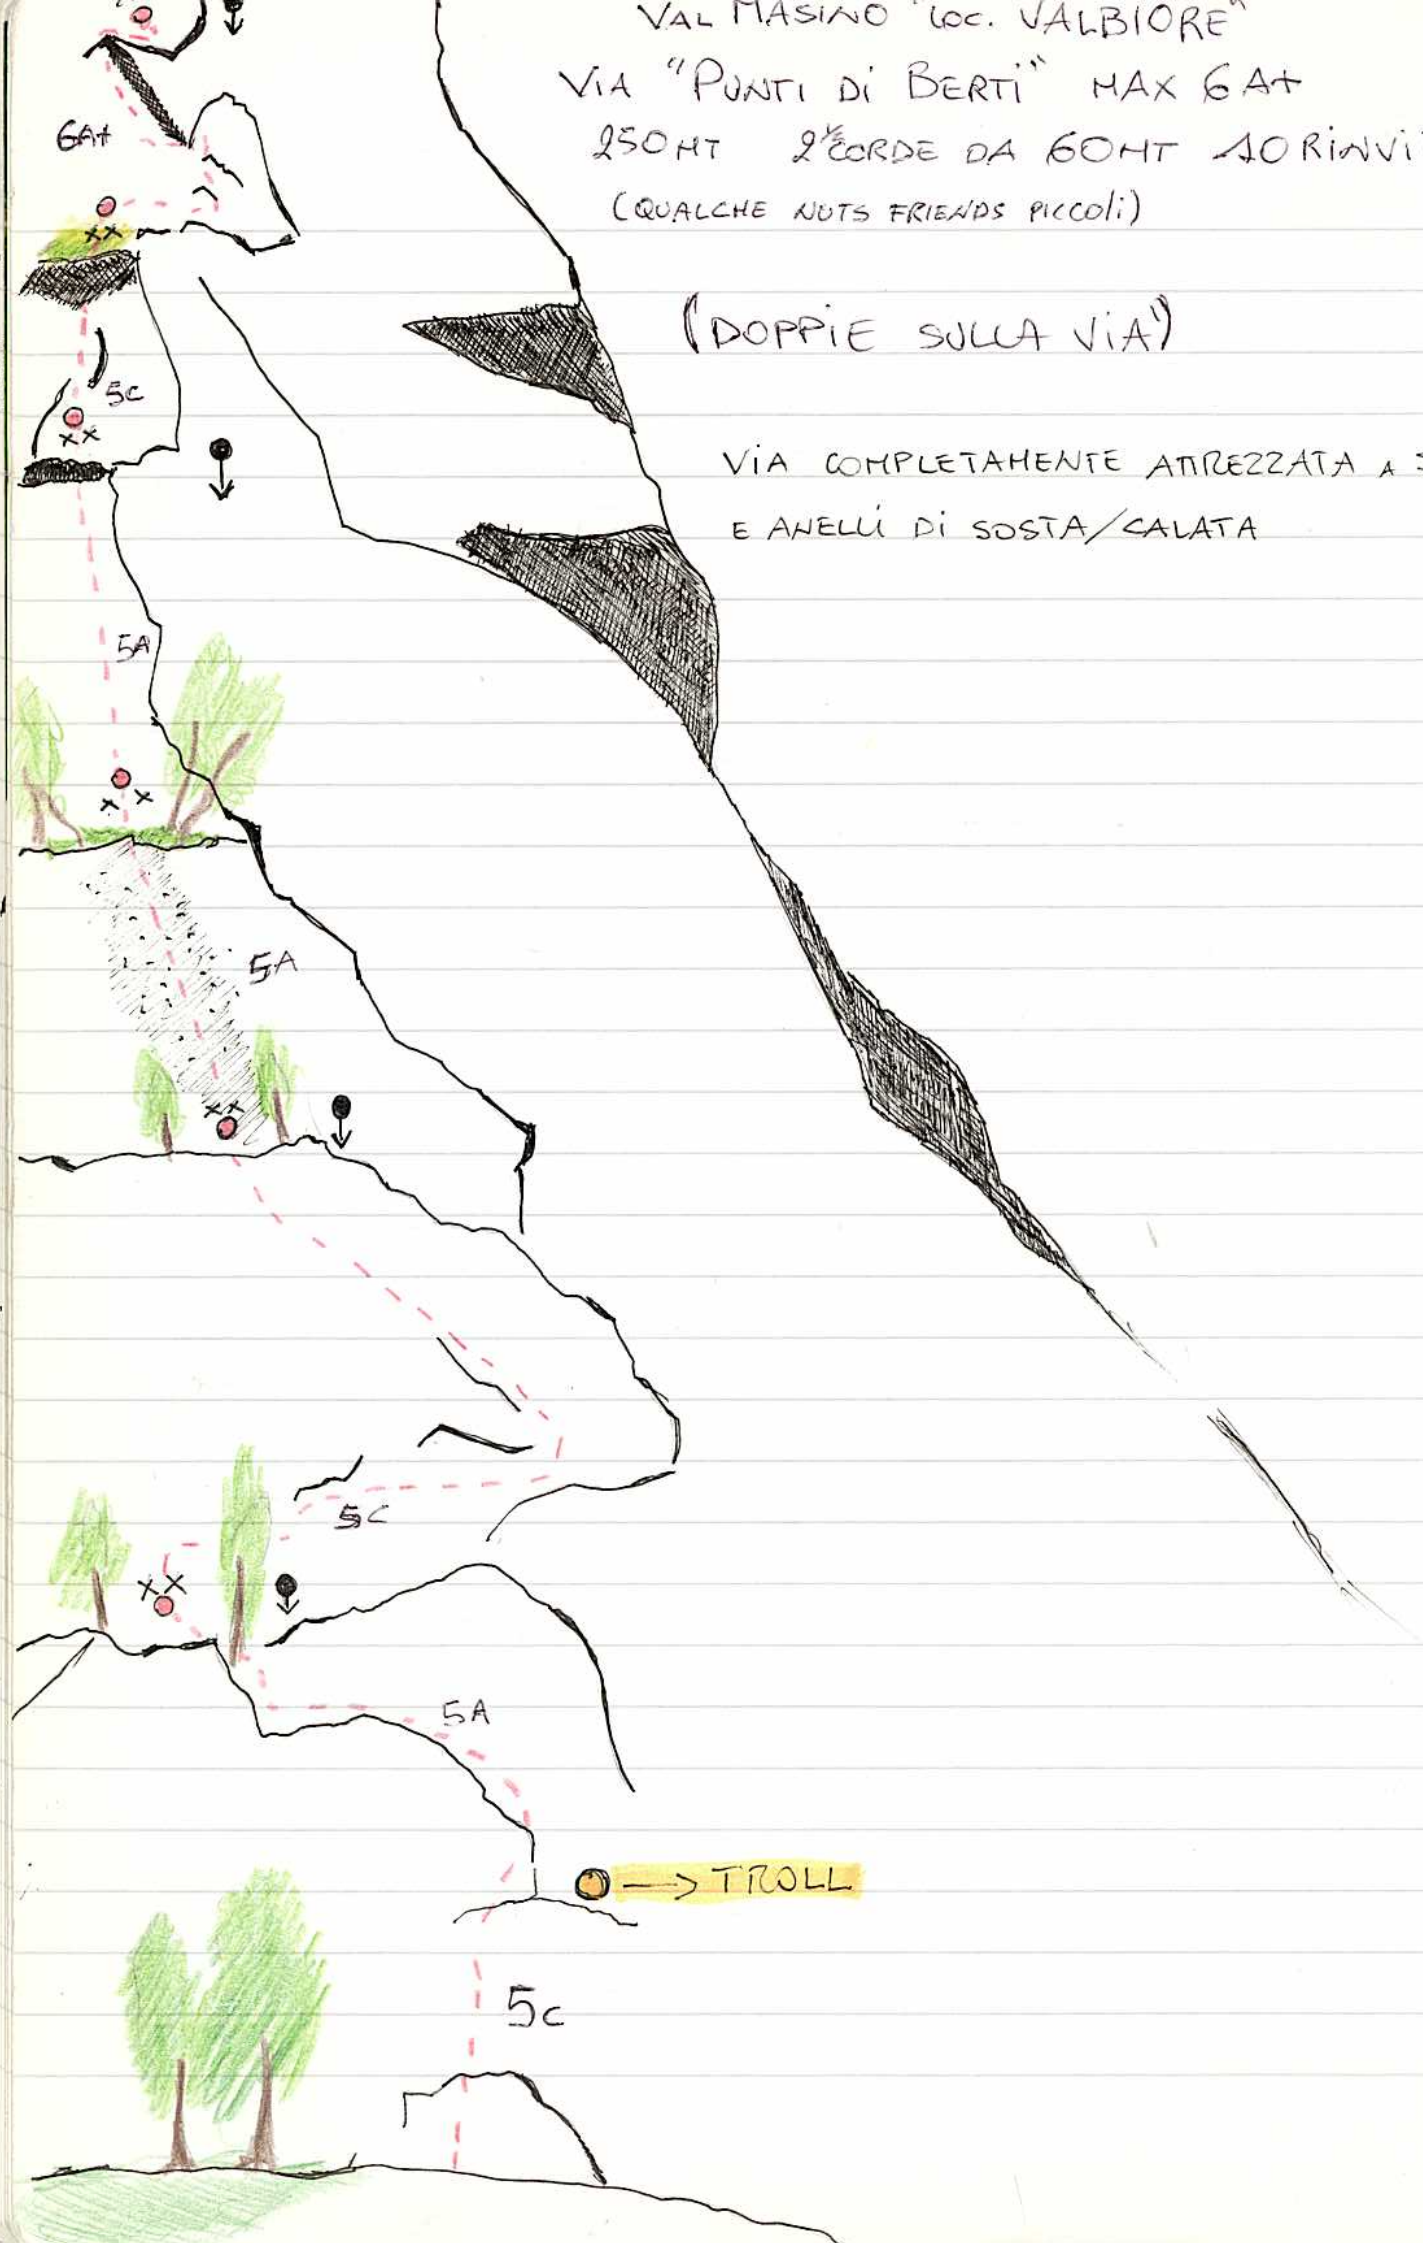 VAL MASINO "LOC. VALBIORE"
VIA "PUNTI DI BERTI" MAX 6A+
250MT 2 ½ CORDE DA 60MT 10 RINVII
(QUALCHE NUTS FRIENDS PICCOLI)
6A+
("DOPPIE SULLA VIA")
5C
VIA COMPLETAMENTE ATTREZZATA A
E ANELLI DI SOSTA/CALATA
5A
5A
5C
5A
TROLL
5C